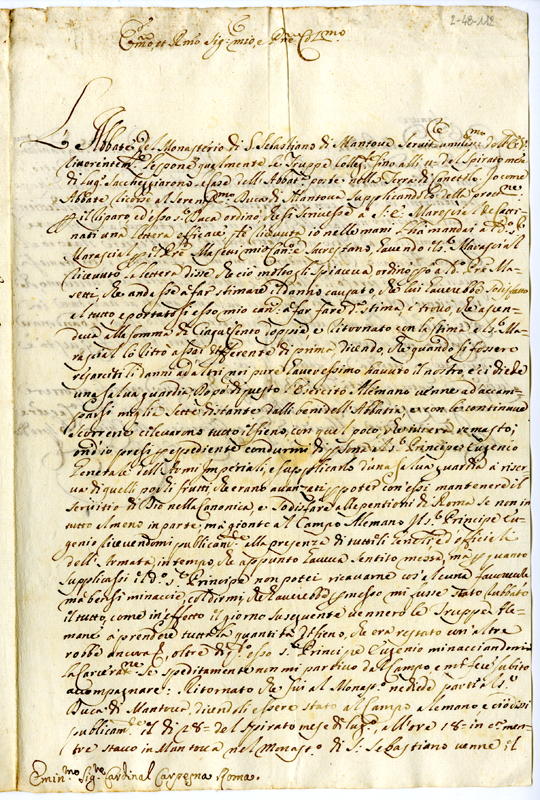 2-48-112
Em̃o, et Rm̃o Sig.r mio, e Prõn Col.mo
L'Abbate del Monasterio di S. Sebastiano di Mantova Servit.e umiliss.mo dell'E.V.
riverentem.te espone qualmente le Truppe Colleg.te sino alli del spirato mese
di Lug.o saccheggiarono case dell'Abbat.a poste nella Terra di Io come
Abbate ricorsi al Seren.mo Duca di Mantova supplicandolo della
p il riparo ed esso s.r Duca ordinò che si scrivesse a S. E. Maresciàl de Cati-
nati una lettera efficace, ricevuta io nelle mani l'ha mandai a d.o S.r
Marescial p il Pre Masini mio Can.co e Sacrestano, havendo il S.r Marescial
ricevuto la lettera disse che ciò molto li spiaceva ordinò poi a d.o Pre Ma-
che andasse a far stimare il danno causato, che lui haverebbe sodisfatto
il tutto e portatosi esso mio can.co a far fare d.a stima, e trovò, che ascen-
deva alla somma di Cinquecento doppie e ritornato con la stima al S.r Ma-
rescial lo ritrovò assai differente di prima, dicendo, che quando si fossero
risarciti li danni ad altri noi pure haveressimo havuto il nostro, e ci diede
una salva guardia. Dopo di questo l'Esercito Alemano venne ad accam-
parsi miglia sette distante dalli beni dell'Abbatia, e con le continoue
scorrerie ci levarono tutto il fieno, con quel poco, che intiero remasto,
ond'io presi p espediente condurmi di p.sona al S.r Principe Eugenio
General dell'Armi Imperiali, e supplicarlo d'una salva guardia a riser-
va di quelli pochi frutti, che erano avanzati p poter con essi mantenere il
servitio di Dio nella Canonica, e sodisfare alle pentioni di Roma se non in
tutto almeno in parte, mà gionto al Campo Alemano il S.r Principe Eu-
genio ricevendomi publicam.te alla presenza di tutti li Generali, ed officiali
dell'Armata, in tempo che appunto haveva sentito messa, mà p quanto
supplicassi il d.o S.r Principe non potei ricavarne cos'alcuna favorevole
mà bensì minaccie, col dirmi, che haverebbe permesso mi fusse stato rubbato
il tutto, come in effetto il giorno susseguente vennero le Truppe Ale-
mane a prendere tutta la quantità di fieno, che era restato con altre
robbe ancora, e, oltre di q.to esso S.r Principe Eugenio minacciandomi
la carceratione se speditamente non mi partivo dal Campo e mi fece subito
accompagnare: Ritornato che fui al Monast.o ne diedi parte al S.r
Duca di Mantova, dicendoli essere stato al Campo Alemano e ciò dissi
publicam.te il dì 28 del spirato mese di lug.o all'ore 18 in c.a men-
tre stavo in Mantova nel Monast.o di S. Sebastiano venne il
Emin.mo Sig.re Cardinal Carpegna Roma.